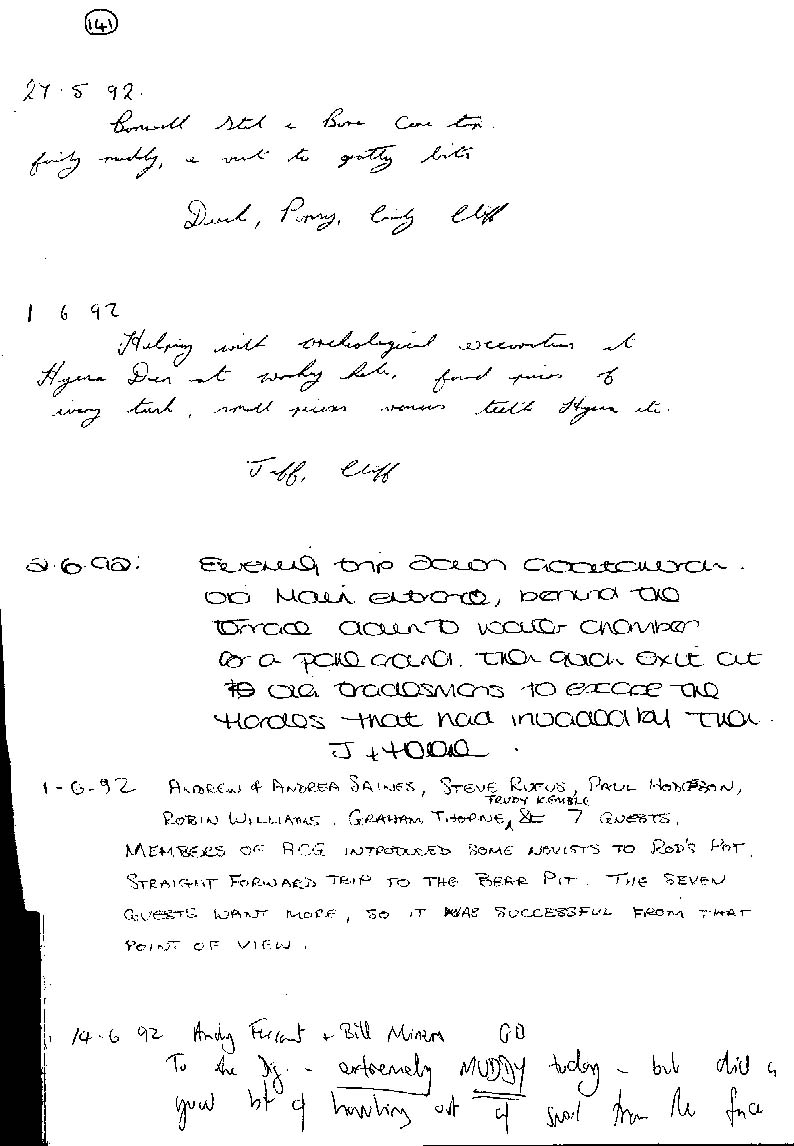 141
27.5 92.
& Bone Cave trip.
fairly muddy, a visit to grotty bits
Penny, Cindy Cliff
1 6 92
Helping with archeological excavation at
Hyena Den at wookey hole, found pieces of
ivory tusk, small pieces various teeth Hyena etc.
Jeff, Cliff
2.6.92: Evening trip down Goatchurch.
Main entrance, behind the
terrace down to water chamber
for a poke around. Then quick exit out
old tradesmans to escape the
Hordes that had invaded by then.
J
1-6-92 ANDREW & ANDREA SAINES, STEVE RUFUS, PAUL HODGSON,
TRUDY KEMBLE
ROBIN WILLIAMS, GRAHAM THORNE, & 7 GUESTS.
MEMBERS OF ACG INTRODUCED SOME NOVISTS TO ROD'S POT.
STRAIGHT FORWARD TRIP TO THE BEAR PIT. THE SEVEN
GUESTS WANT MORE, SO IT WAS SUCCESSFUL FROM THAT
POINT OF VIEW.
14.6 92 Andy + Bill Miners GO
To the Dig. - extremely MUDDY today - but did a
good bit of hauling out of spoil from the face